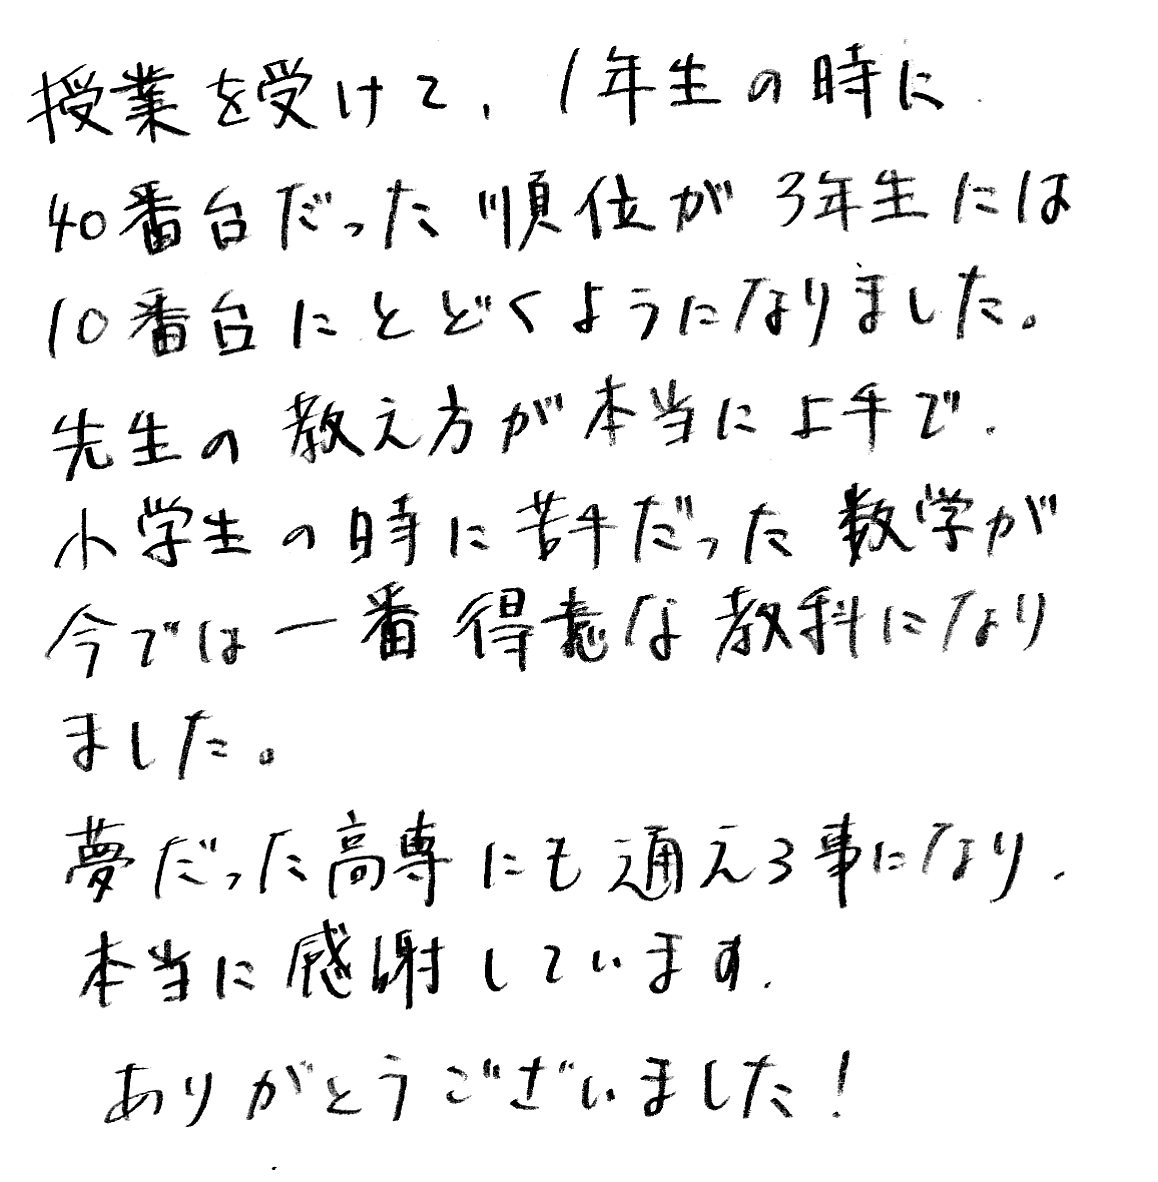 授業を受けて、1年生の時に
40番台だった順位が3年生には
10番台にとどくようになりました。
先生の教え方が本当に上手で、
小学生の時に苦手だった数学が
今では一番得意な教科になり
ました。
夢だった高専にも通える事になり、
本当に感謝しています。
ありがとうございました!